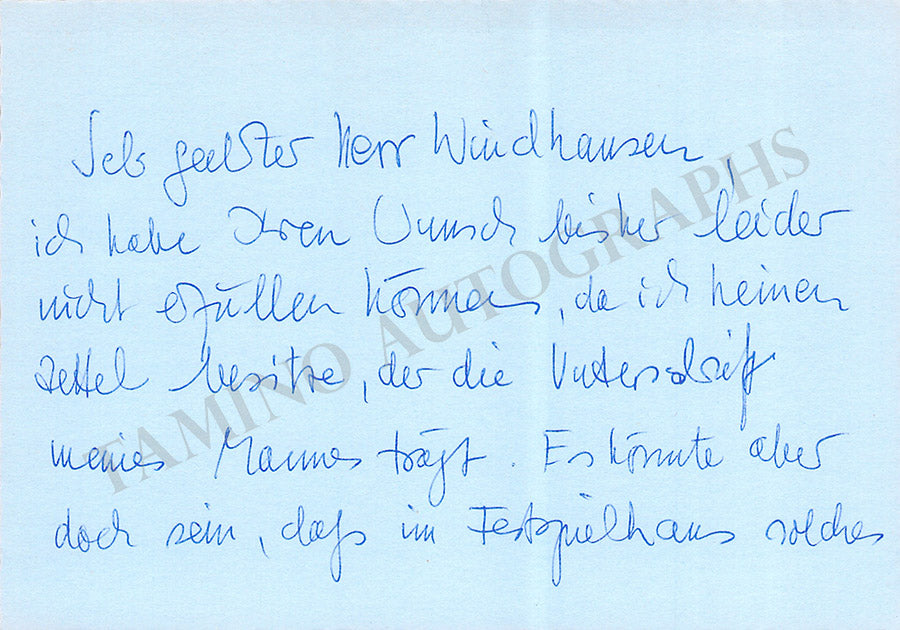 Sehr geehrter Herr Windhausen
ich habe Ihren Wunsch bisher leider
nicht erfüllen können, da ich keinen
Zettel besitze, der die Unterschrift
meines Mannes trägt. Es könnte aber
doch sein, daß im Festspielhaus solches
TAMINO AUTOGRAPHS